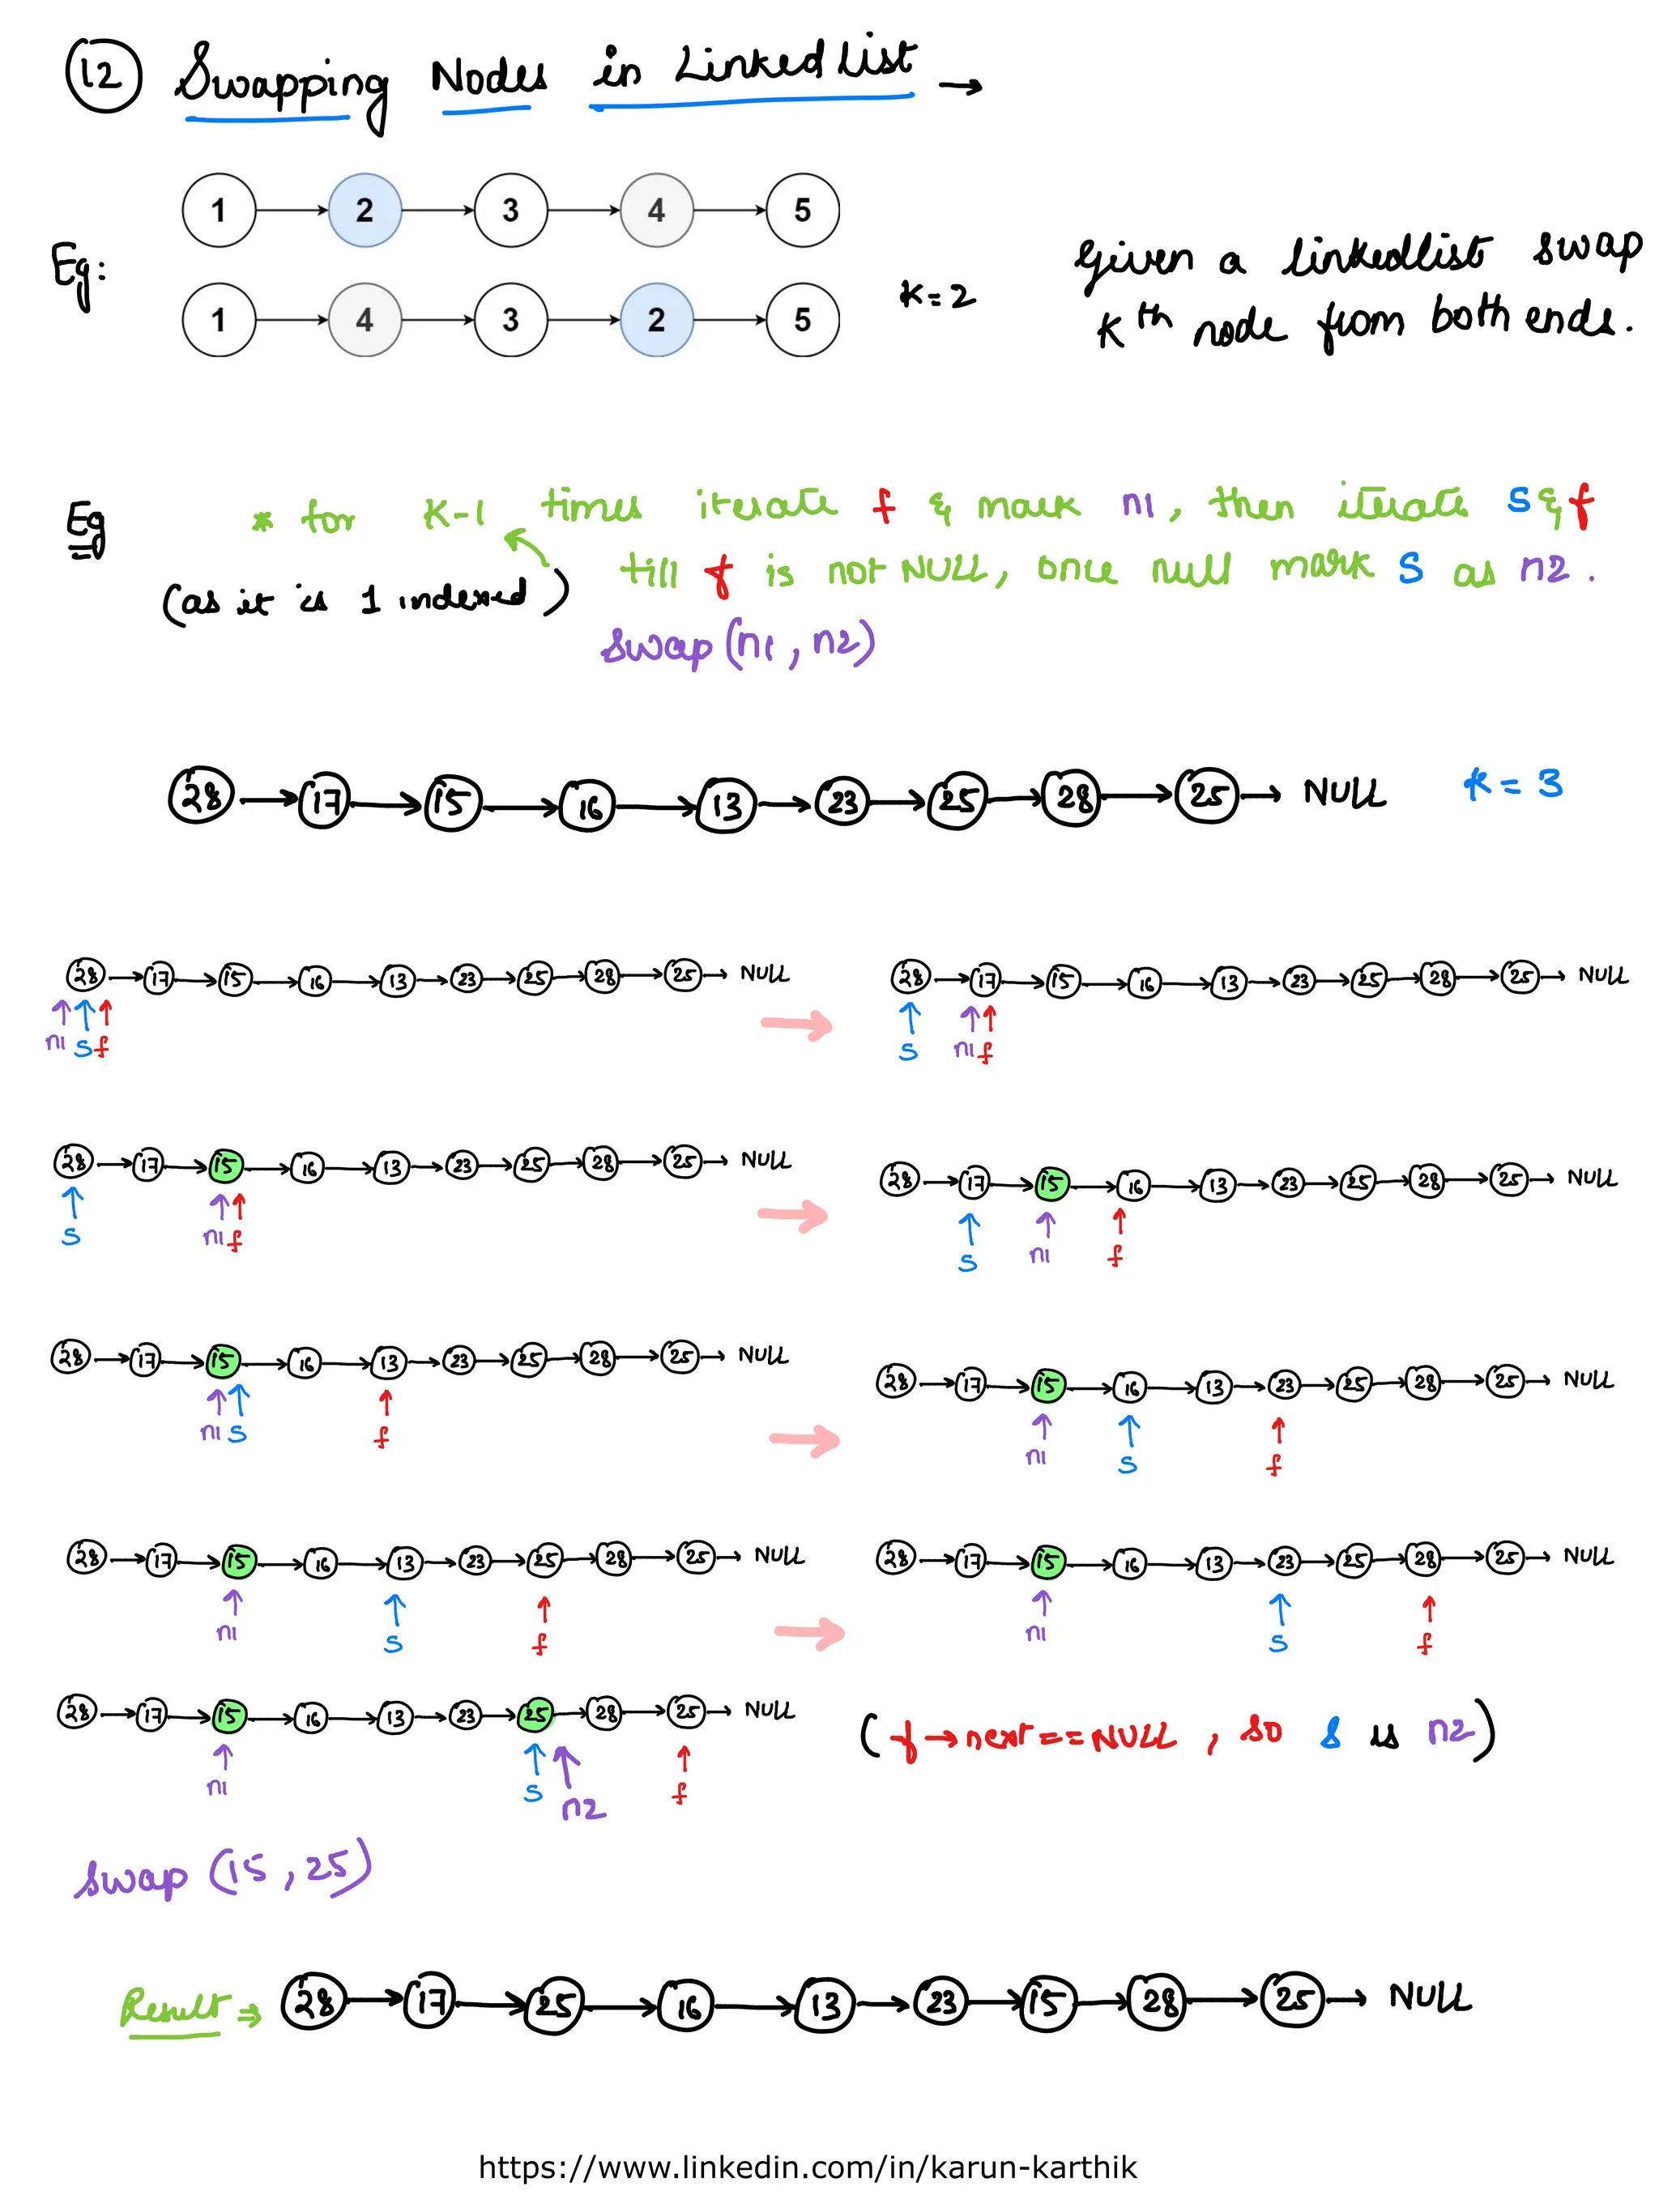 12 Swapping Nodes in Linked List →
1 → 2 → 3 → 4 → 5
Eg:
1 → 4 → 3 → 2 → 5
K=2
Given a linkedlist swap
Kth node from both ends.
Eg
* for K-1 times iterate f & mark n1, then iterate S & f
(as it is 1 indexed)
till f is not NULL, once null mark S as n2.
Swap(n1, n2)
28 → 17 → 15 → 16 → 13 → 23 → 25 → 28 → 25 → NULL K = 3
28 → 17 → 15 → 16 → 13 → 23 → 25 → 28 → 25 → NULL
n1 S f
28 → 17 → 15 → 16 → 13 → 23 → 25 → 28 → 25 → NULL
S n1 f
28 → 17 → 15 → 16 → 13 → 23 → 25 → 28 → 25 → NULL
S n1 f
28 → 17 → 15 → 16 → 13 → 23 → 25 → 28 → 25 → NULL
S n1 f
28 → 17 → 15 → 16 → 13 → 23 → 25 → 28 → 25 → NULL
n1 S f
28 → 17 → 15 → 16 → 13 → 23 → 25 → 28 → 25 → NULL
n1 S f
28 → 17 → 15 → 16 → 13 → 23 → 25 → 28 → 25 → NULL
n1 S f
28 → 17 → 15 → 16 → 13 → 23 → 25 → 28 → 25 → NULL
n1 S f
28 → 17 → 15 → 16 → 13 → 23 → 25 → 28 → 25 → NULL
n1 S n2 f
(f→next==NULL, so S is n2)
Swap (15, 25)
Result ⇒ 28 → 17 → 25 → 16 → 13 → 23 → 15 → 28 → 25 → NULL
https://www.linkedin.com/in/karun-karthik